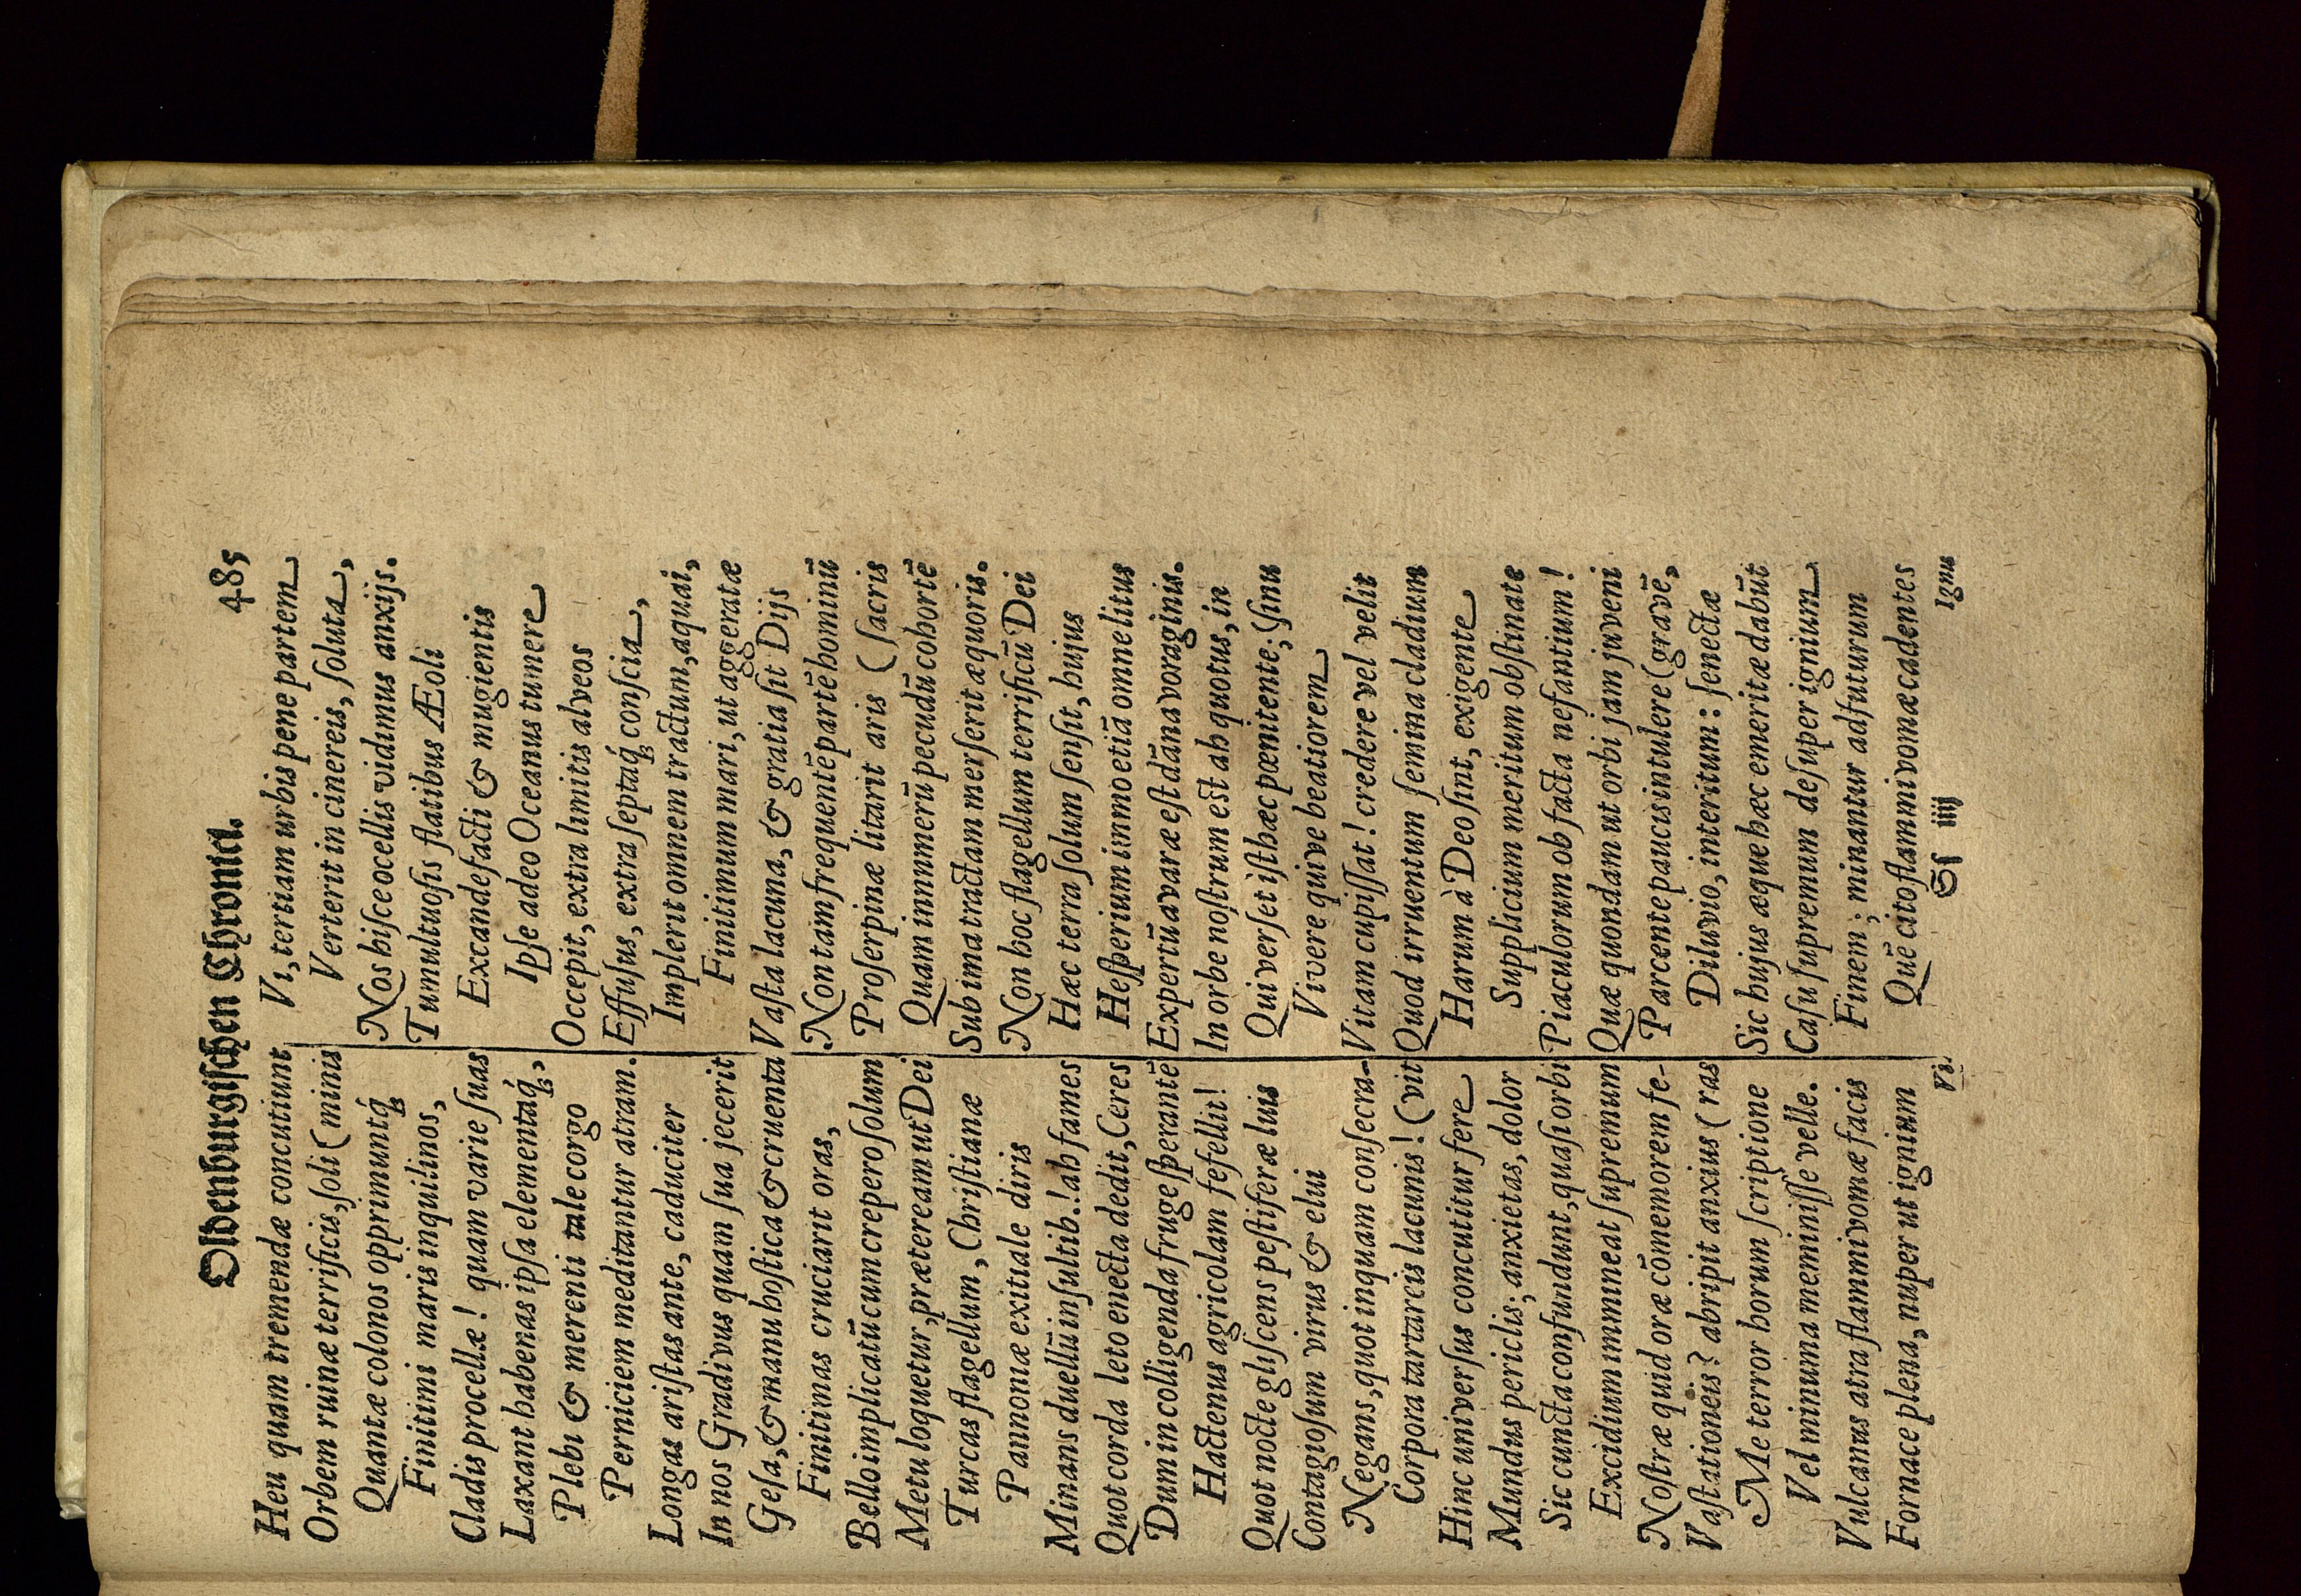 Oldenburgischen Chronict. 485
Heu quam tremendæ concutiunt
Orbem ruinæ terrificis, ſoli (minis
Quantæ colonos opprimuntq́ꝫ
Finitimi maris inquilinos,
Cladis procellæ! quam varie ſuas
Laxant habenas ipſa elementaq́ꝫ,
Plebi & merenti tale corgo
Perniciem meditantur atram.
Longas ariſtas ante, caduciter
In nos Gradivus quam ſua jecerit
Geſa, & manu hoſtica & cruenta
Finitimas cruciarit oras,
Bello implicatū cum crepero ſolum
Metu loquetur, prætereamut Dei
Turcas flagellum, Chriſtianæ
Pannoniæ exitiale diris
Minans duellū inſultib.! ah fames
Quot corda leto enecta dedit, Ceres
Dum in colligenda fruge ſperantē
Hactenus agricolam fefellit!
Quot nocte gliſcens peſtiferæ luis
Contagioſum virus & elui
Negans, quot inquam conſecra-
Corpora tartareis lacunis! (vit
Hinc univerſus concutitur fere
Mundus periclis; anxietas, dolor
Sic cuncta confundunt, quaſi orbi
Excidium immineat ſupremum
Noſtræ quid oræ cōmemorem fe-
Vaſtationeis? abripit anxius (ras
Me terror horum ſcriptione
Vel minuma meminiſſe velle.
Vulcanus atra flammivomæ facis
Fornace plena, nuper ut ignium
Vi.
Vi, tertiam urbis pene partem
Verterit in cinereis, ſoluta,
Nos hiſce ocellis vidimus anxijs.
Tumultuoſis flatibus Æoli
Excandefacti & mugientis
Ipſe adeo Oceanus tumere
Occepit, extra limitis alveos
Effuſus, extra ſeptaq́ꝫ conſcia,
Implerit omnem tractum, aquai,
Finitimum mari, ut aggeratæ
Vaſta lacuna, & gratia ſit Dijs
Non tam frequentē partē hominū
Proſerpinæ litarit aris (ſacris
Quam innmerū pecudū cohortē
Sub ima tractam merſerit æquoris.
Non hoc flagellum terrificū Dei
Hæc terra ſolum ſenſit, hujus
Heſperium immo etiā omne litus
Expertū avaræ eſt dāna voraginis.
In orbe noſtrum eſt ah quotus, in
Qui verſet iſthæc pœnitente; (ſinu
Vivere quive beatiorem
Vitam cupiſſat! credere vel velit
Quod irruentum ſemina cladium
Harum à Deo ſint, exigente
Supplicium meritum obſtinate
Piaculorum ob facta nefantium!
Quæ quondam ut orbi jam juveni
Parcente paucis intulere (gravē,
Diluvio, interitum: ſenectæ
Sic hujus æque hæc emeritæ dabūt
Caſu ſupremum deſuper ignium
Finem; minantur adfuturum
Quē cito flammivomæ cadentes
Sſ iiij Ignus